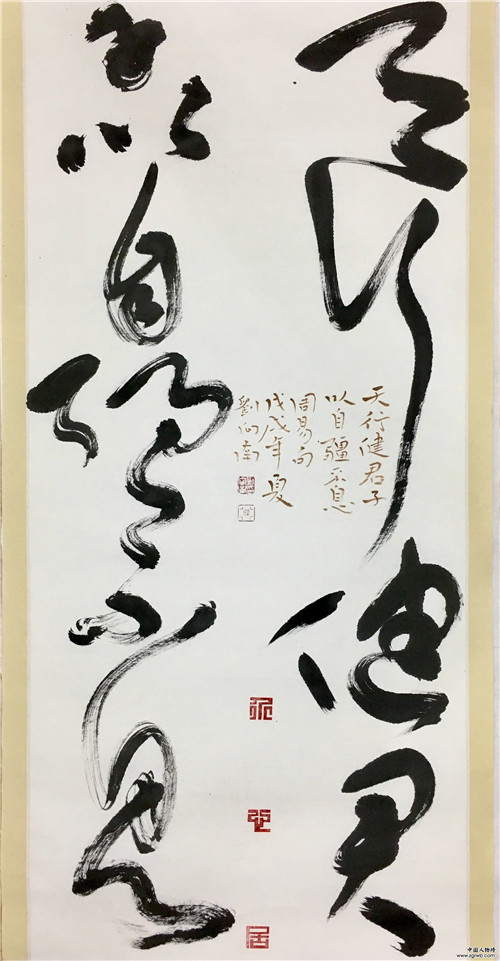 天行健君
子以自彊不息
天行健君子
以自疆不息
周易句
戊戌年夏
劉南
中国人物榜
www.zgrwb.com